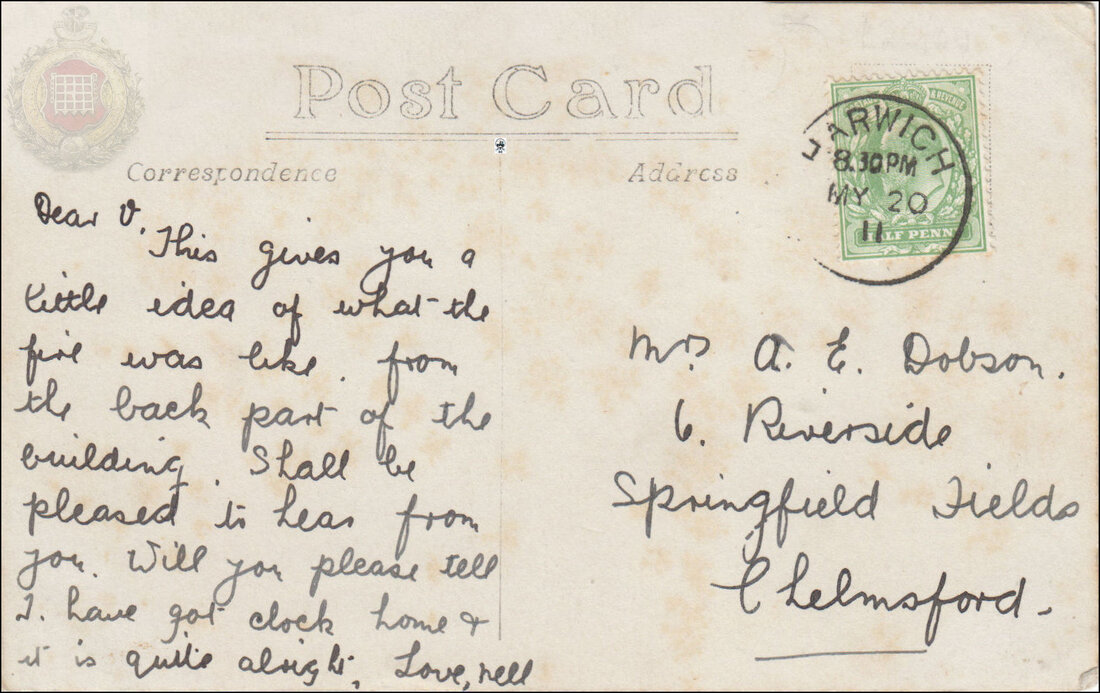 Post Card
Correspondence
Address
HARWICH
8.30PM
MY 20
11
& REVENUE
HALF PENNY
Dear V.
This gives you a
little idea of what the
fire was like. from
the back part of the
building. Shall be
pleased to hear from
you. Will you please tell
I. have got clock home &
it is quite alright. Love, Nell
Mrs A. E. Dobson.
6. Riverside
Springfield Fields
Chelmsford.